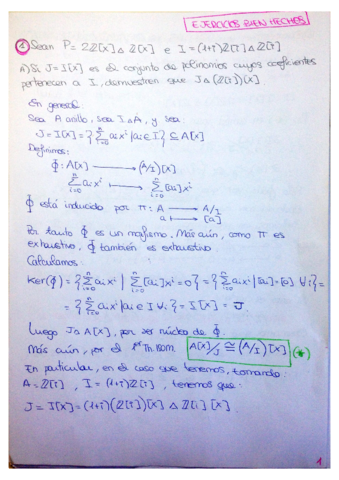 EJERCICIOS BIEN HECHOS
① Sean P = 2ℤ[x] △ ℤ[x] e I = (1+i)ℤ[i] △ ℤ[i]
A) Si J = I[x] es el conjunto de polinomios cuyos coeficientes
pertenecen a I, demuestren que J △ (ℤ[i])[x]
En general
Sea A anillo, sea I △ A, y sea
J = I[x] = { Σ_{i=0}^{n} aᵢxⁱ | aᵢ ∈ I } ⊆ A[x]
Definimos:
Φ: A[x] → (A/I)[x]
Σ_{i=0}^{n} aᵢxⁱ ↦ Σ_{i=0}^{n} [aᵢ]xⁱ
Φ está inducido por π: A → A/I
a ↦ [a]
Por tanto Φ es un morfismo. Más aún, como π es
exhaustivo, Φ también es exhaustivo.
Calculamos:
Ker(Φ) = { Σ_{i=0}^{n} aᵢxⁱ | Σ_{i=0}^{n} [aᵢ]xⁱ = 0 } = { Σ_{i=0}^{n} aᵢxⁱ | [aᵢ] = [0] ∀i } =
= { Σ_{i=0}^{n} aᵢxⁱ | aᵢ ∈ I ∀i } = I[x] = J.
Luego J △ A[x], por ser núcleo de Φ.
Más aún, por el 1er Th. ISOM. A[x]/J ≅ (A/I)[x] (*)
En particular, en el caso que tenemos, tomando:
A = ℤ[i], I = (1+i)ℤ[i], tenemos que:
J = I[x] = (1+i)(ℤ[i])[x] △ ℤ[i][x]
1